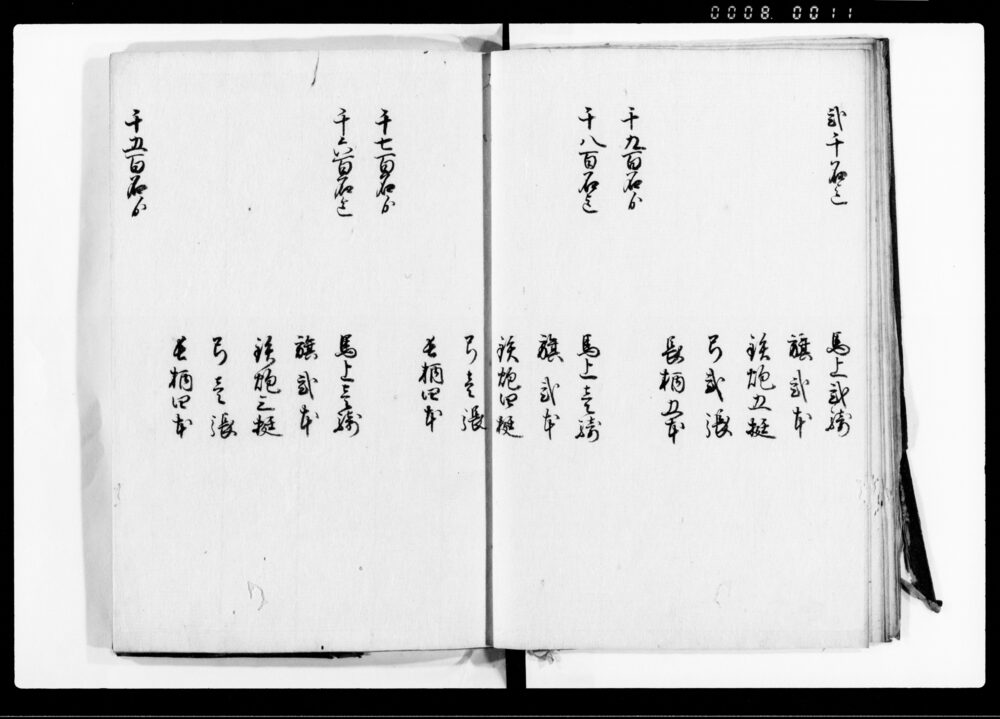 0008 0011
弐千石迄
馬上弐騎
旗弐本
鉄炮五挺
弓弐張
長柄五本
千九百石ゟ
千八百石迄
馬上壱騎
旗弐本
鉄炮四挺
弓壱張
長柄四本
千七百石ゟ
千六百石迄
馬上壱騎
旗弐本
鉄炮三挺
弓壱張
長柄四本
千五百石ゟ